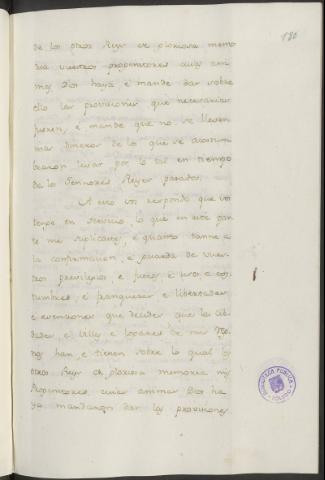 180
de los otros Reyes de gloriosa memo
ria vuestros progenitores cuias ani
mas Dios haya, é mande dar sobre
ello las provisiones que necesarias
fueren, é mande que no se lleven
mas dineros de lo que se acostum
braron levar por lo tal en tiempo
de los Sennores Reyes pasados.
A esto vos respondo que vos
tengo en servicio lo que en esta par
te me suplicastes, é quanto tanne a
la confirmacion, é guarda de vues
tros previlegios é fueros, é usos é cos
tumbres, é franquezas, é libertades
é esenciones que decides que las Cib
dades, é Villas é Logares de mis Reg
nos han, é tienen sobre lo qual los
otros Reyes de gloriosa memoria mis
Progenitores, cuias animas Dios ha
ya mandaron dar las provisiones
BIBLIOTECA PUBLICA
TOLEDO